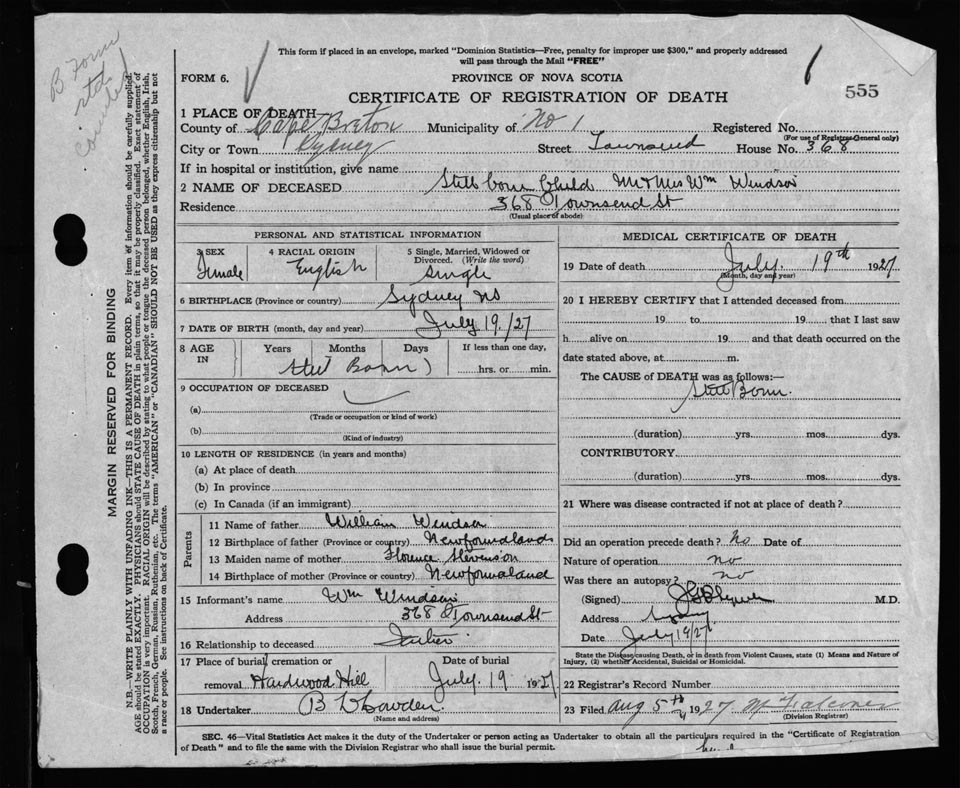 This form if placed in an envelope, marked "Dominion Statistics—Free, penalty for improper use $300," and properly addressed
will pass through the Mail "FREE"
B Form
std
FORM 6.
PROVINCE OF NOVA SCOTIA
CERTIFICATE OF REGISTRATION OF DEATH
555
1 PLACE OF DEATH—
County of Cape Breton Municipality of No 1 Registered No.
(For use of Registrar General only)
City or Town Sydney Street Townsend House No. 368
If in hospital or institution, give name
2 NAME OF DECEASED Still born Child Mr & Mrs Wm Windsor
Residence 368 Townsend St
(Usual place of abode)
PERSONAL AND STATISTICAL INFORMATION
3 SEX 4 RACIAL ORIGIN 5 Single, Married, Widowed or
Divorced. (Write the word)
Female English Single
6 BIRTHPLACE (Province or country) Sydney NS
7 DATE OF BIRTH (month, day and year) July 19/27
8 AGE
IN
Years Months Days If less than one day,
Still Born hrs. or min.
9 OCCUPATION OF DECEASED
(a)
(Trade or occupation or kind of work)
(b)
(Kind of industry)
10 LENGTH OF RESIDENCE (in years and months)
(a) At place of death
(b) In province
(c) In Canada (if an immigrant)
Parents
11 Name of father William Windsor
12 Birthplace of father (Province or country) Newfoundland
13 Maiden name of mother Florence Stevenson
14 Birthplace of mother (Province or country) Newfoundland
15 Informant's name Wm Windsor
Address 368 Townsend St
16 Relationship to deceased Father
17 Place of burial, cremation or Date of burial
removal Hardwood Hill July 19 1927
18 Undertaker
(Name and address)
MEDICAL CERTIFICATE OF DEATH
19 Date of death July 19th 1927
(Month, day and year)
20 I HEREBY CERTIFY that I attended deceased from
19 to 19 that I last saw
h alive on 19 and that death occurred on the
date stated above, at m.
The CAUSE of DEATH was as follows:—
Still Born.
(duration) yrs. mos. dys.
CONTRIBUTORY
(duration) yrs. mos. dys.
21 Where was disease contracted if not at place of death?
Did an operation precede death? No Date of
Nature of operation no
Was there an autopsy? no
(Signed) M.D.
Address Sydney
Date July 19/27
State the Disease causing Death, or in death from Violent Causes, state (1) Means and Nature of
Injury, (2) whether Accidental, Suicidal or Homicidal.
22 Registrar's Record Number
23 Filed Aug 5th 1927 M Falconer
(Division Registrar)
SEC. 46—Vital Statistics Act makes it the duty of the Undertaker or person acting as Undertaker to obtain all the particulars required in the "Certificate of Registration
of Death" and to file the same with the Division Registrar who shall issue the burial permit.
MARGIN RESERVED FOR BINDING
N.B.—WRITE PLAINLY WITH UNFADING INK—THIS IS A PERMANENT RECORD. Every item of information should be carefully supplied.
AGE should be stated EXACTLY. PHYSICIANS should STATE CAUSE OF DEATH in plain terms, so that it may be properly classified. Exact statement of
OCCUPATION is very important. RACIAL ORIGIN will be described by stating to what people or tongue the deceased person belonged, whether English, Irish,
Scotch, French, German, Russian, Ruthenian, etc. The terms "AMERICAN" or "CANADIAN" SHOULD NOT BE USED as they express citizenship but not
a race or people. See instructions on back of Certificate.